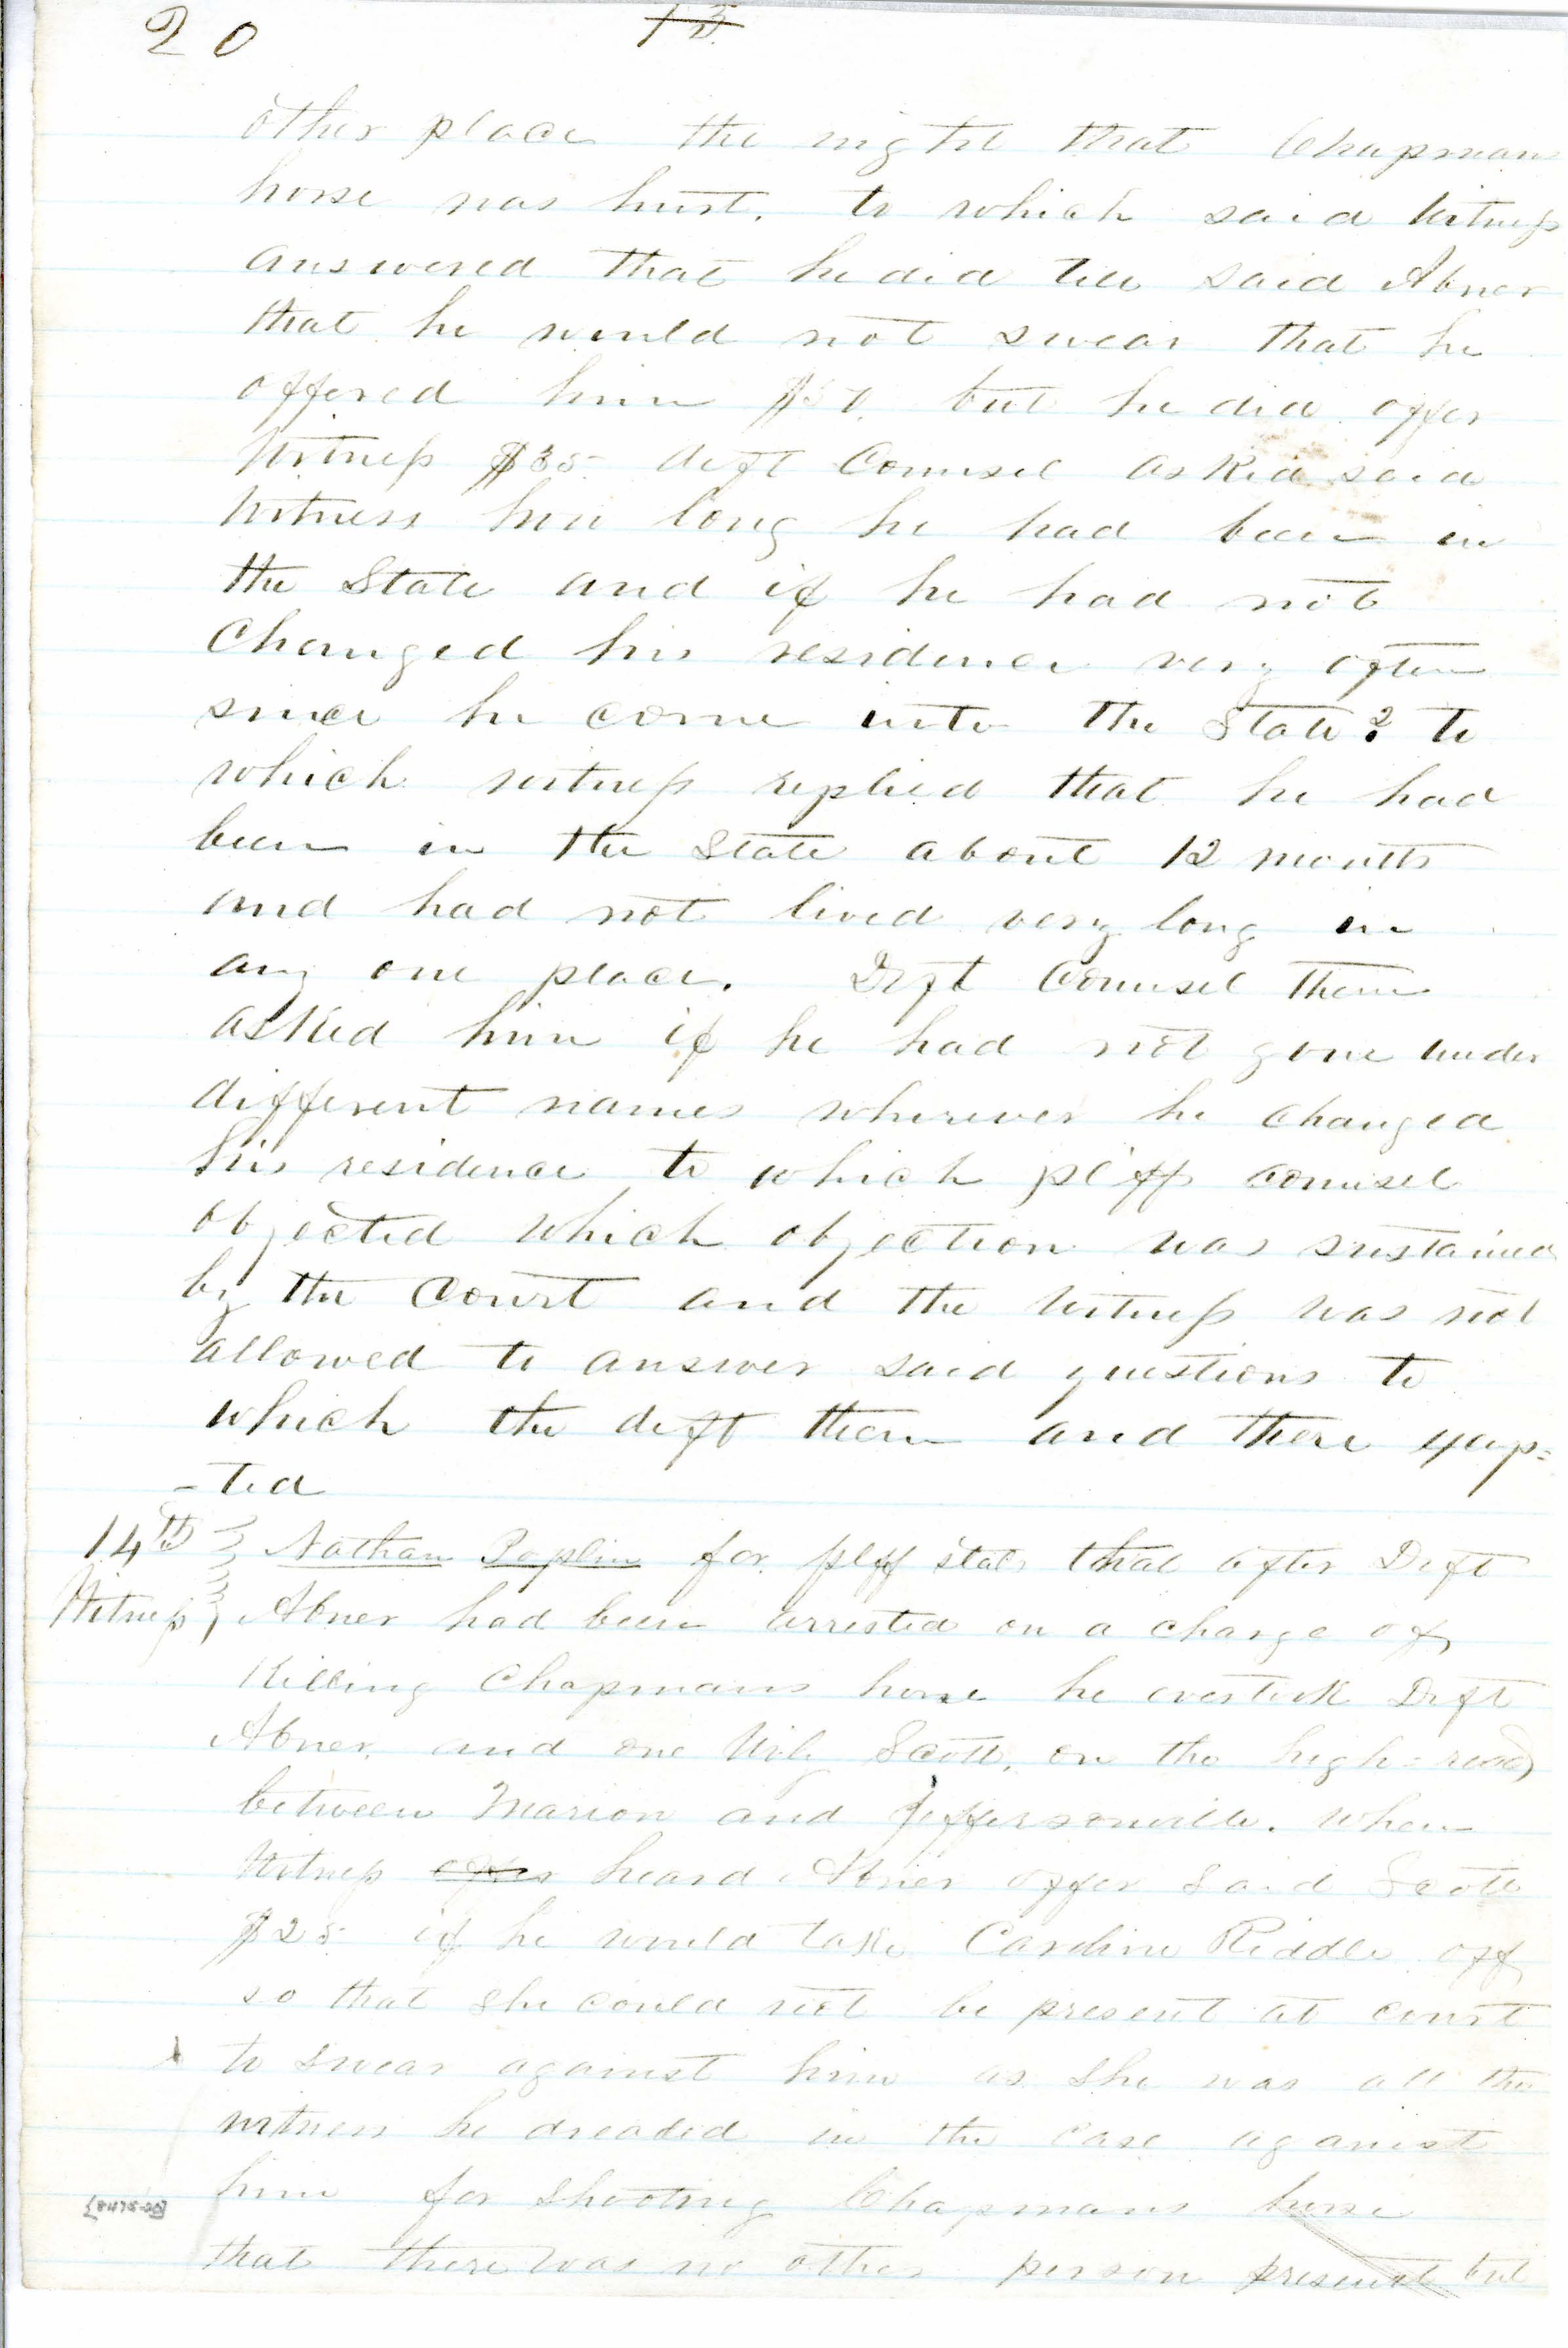 20 13
other place the night that Chapmans
horse was hurt. to which said Witness
answered that he did tell said Abner
that he would not swear that he
offered him $50. but he did offer
Witness $35 deft Counsel asked said
Witness how long he had been in
the State and if he had not
Changed his residence very often
since he come into the State? to
which witness replied that he had
been in the State about 12 months
and had not lived very long in
any one place. Deft Counsel then
asked him if he had not gone under
different names wherever he changed
his residence to which pltff counsel
objected which objection was sustained
by the Court and the Witness was not
allowed to answer said questions to
which the deft then and there
-ted
14th Nathan Poplin for pltff stats that after Deft
Witness Abner had been arrested on a charge of
Killing Chapmans horse he overtook Deft
Abner. and one Wily Scott, on the high-road
between Marion and Jeffersonville. when
Witness offer heard Abner offer said Scott
$25 if he would take Caroline Riddle off
so that she could not be present at court
to swear against him as she was all the
witness he dreaded in the case against
him for shooting Chapmans horse
that there was no other person present but